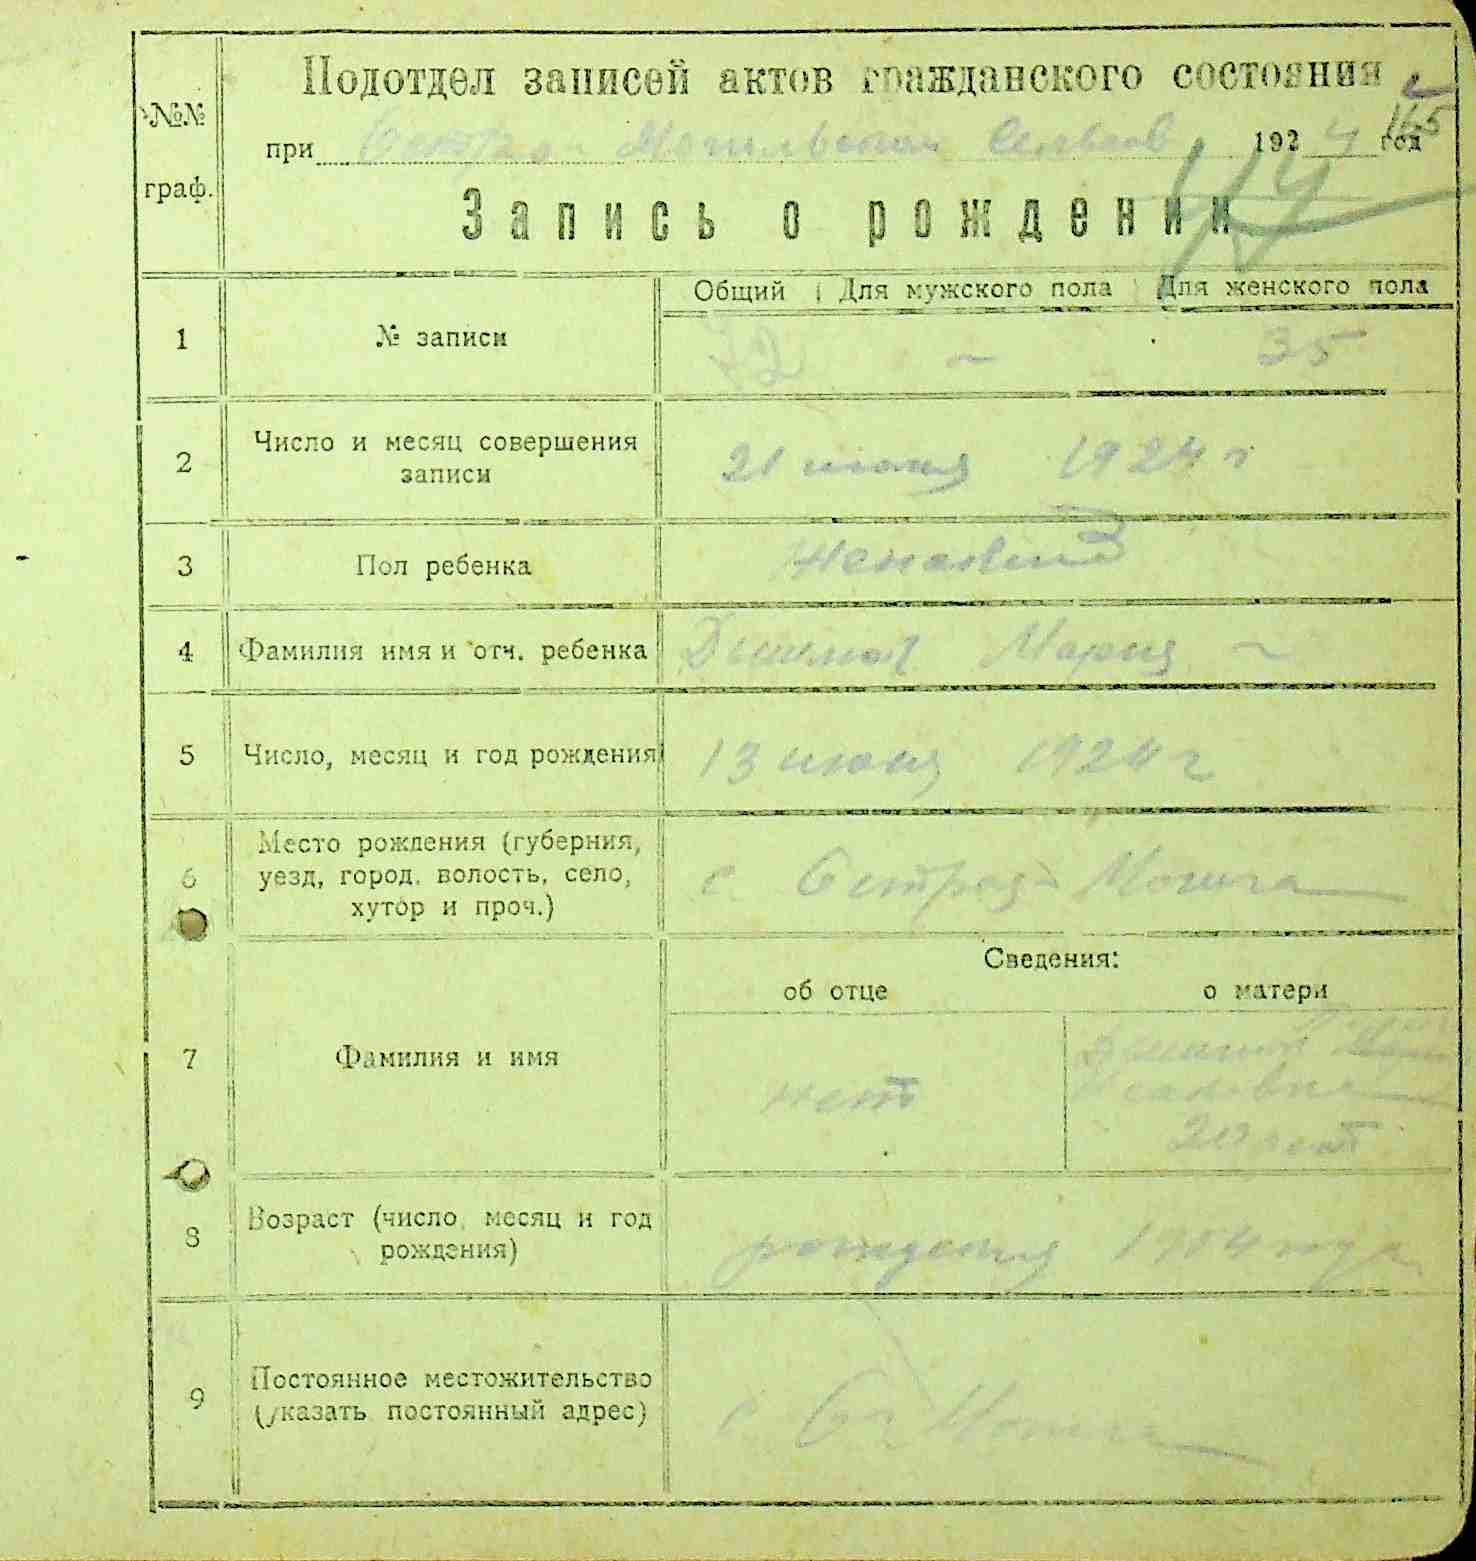 Подотдел записей актов гражданского состояния
№№ граф.
165
при Остро Могильском 1924 год
Запись о рождении
Общий Для мужского пола Для женского пола
1 № записи 72 ~ 35
2 Число и месяц совершения
записи
21 июня 1924 г
3 Пол ребенка Женский
4 Фамилия имя и отч. ребенка Мария ~
5 Число, месяц и год рождения 13 июня 1924 г
6 Место рождения (губерния,
уезд, город, волость, село,
хутор и проч.)
с Остра Могила
Сведения:
об отце о матери
7 Фамилия и имя нет
8 Возраст (число, месяц и год
рождения)
рождения года
9 Постоянное местожительство
(указать постоянный адрес)
с Ос Могила